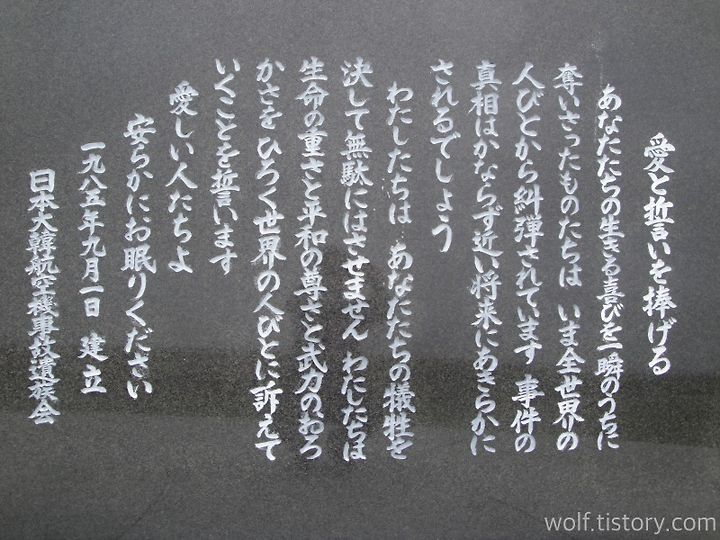 愛と誓いを捧げる
あなたたちの生きる喜びを一瞬のうちに
奪いさったものたちは いま全世界の
人びとから糾弾されています 事件の
真相はかならず近い将来にあきらかに
されるでしょう
わたしたちは あなたたちの犠牲を
決して無駄にはさせません わたしたちは
生命の重さと平和の尊さと武力のおろ
かさをひろく世界の人びとに訴えて
いくことを誓います
愛しい人たちよ
安らかにお眠りください
一九八五年九月一日 建立
日本大韓航空機事故遺族会
wolf.tistory.com